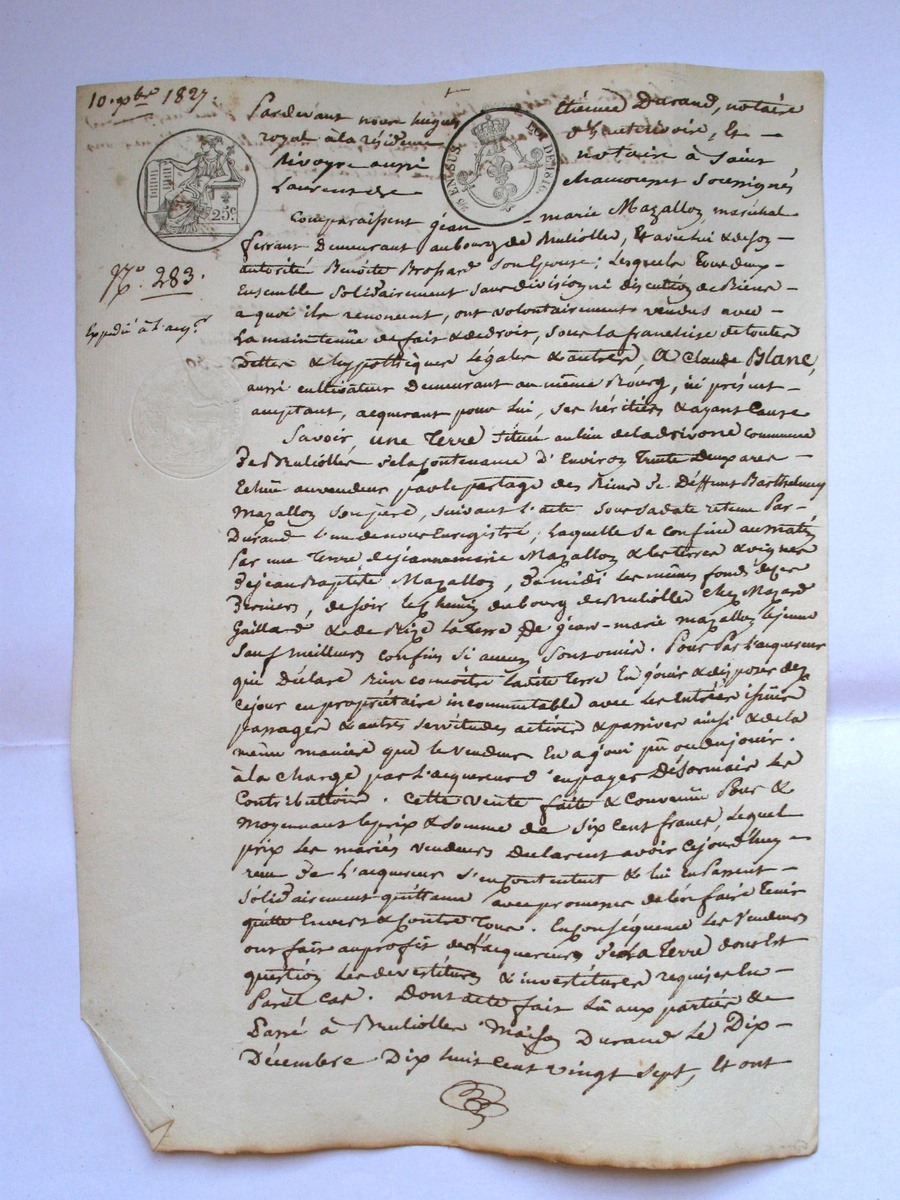 10 Xbre 1827.
Pardevant nous hugues thienne Durand, notaire
royal à la résidence d'hauterivoire, Et -
Rivoyre aussi notaire à Saint
Laurent de chamousset soussignés
25c
EN SUS. LOI DE 1816.
No. 283.
Expédié à l'acqr
Comparaissent géan-marie Mazalloz, maréchal
ferrant demeurant au bourg de Brulioller, Et avec lui & de son
autorité Benoite Brossard son Epouse; lesquels Tous deux
Ensemble solidairement sans division ni discution de Biens
a quoi ils renoncent, ont volontairement vendus avec -
La maintenüe de fait & de droit, sous la franchise de toutes
Dettes & hypothèques légales & autres, à Claude Blanc,
aussi cultivateur demeurant au même Bourg, ici présent -
acceptant, acquerant pour lui, ses héritiers & ayant cause
Savoir, une Terre située au lieu de la commune
De Brulioller de la contenance d'Environ Trente deux ares -
Echue au vendeur par le partage des Biens de Deffunt Barthelemy
Mazalloz son père, suivant l'acte sous sa date retenu Par -
Durand l'un de nous Enregistré; laquelle se confine au matin
Par une Terre de jeanne marie Mazalloz & les terres & vignes
De jean Baptiste Mazalloz, De midi les mêmes fonds de ces
Derniers, de soir le chemin du bourg de Brulioller chez Mazard
Gaillard & de Bize la Terre de géan-marie mazalloz le jeune
Sauf meilleurs confins si aucuns sont omis. Pour Par l'acquereur
qui Déclare bien connoitre ladite Terre En jouir & disposer dez
Cejour en propriétaire incommutable avec les Entrées issües
passages & autres servitudes actives & passives ainsi & de la
même manière que le vendeur En a joui pü ou du jouir.
à la charge par l'acquereur d'en payer Désormais les
Contributtions. Cette vente faite & convenüe Pour &
Moyennant le prix & somme de six cent francs, lequel
prix les mariés vendeurs declarent avoir cejourd'huy -
reçu De l'acquereur s'en contentent & lui En Passent -
solidairement quittance avec promesse de l'en faire Tenir
quitte Envers & contre Tous. En conséquence les Vendeurs
ont fait au profit de l'acquereur De la Terre dont Est
question les devestitures & investitures requises En -
Pareil cas. Dont acte fait Lû aux parties &
Passé à Brulioller Maison Durand Le Dix -
Décembre Dix huit cent vingt sept, Et ont